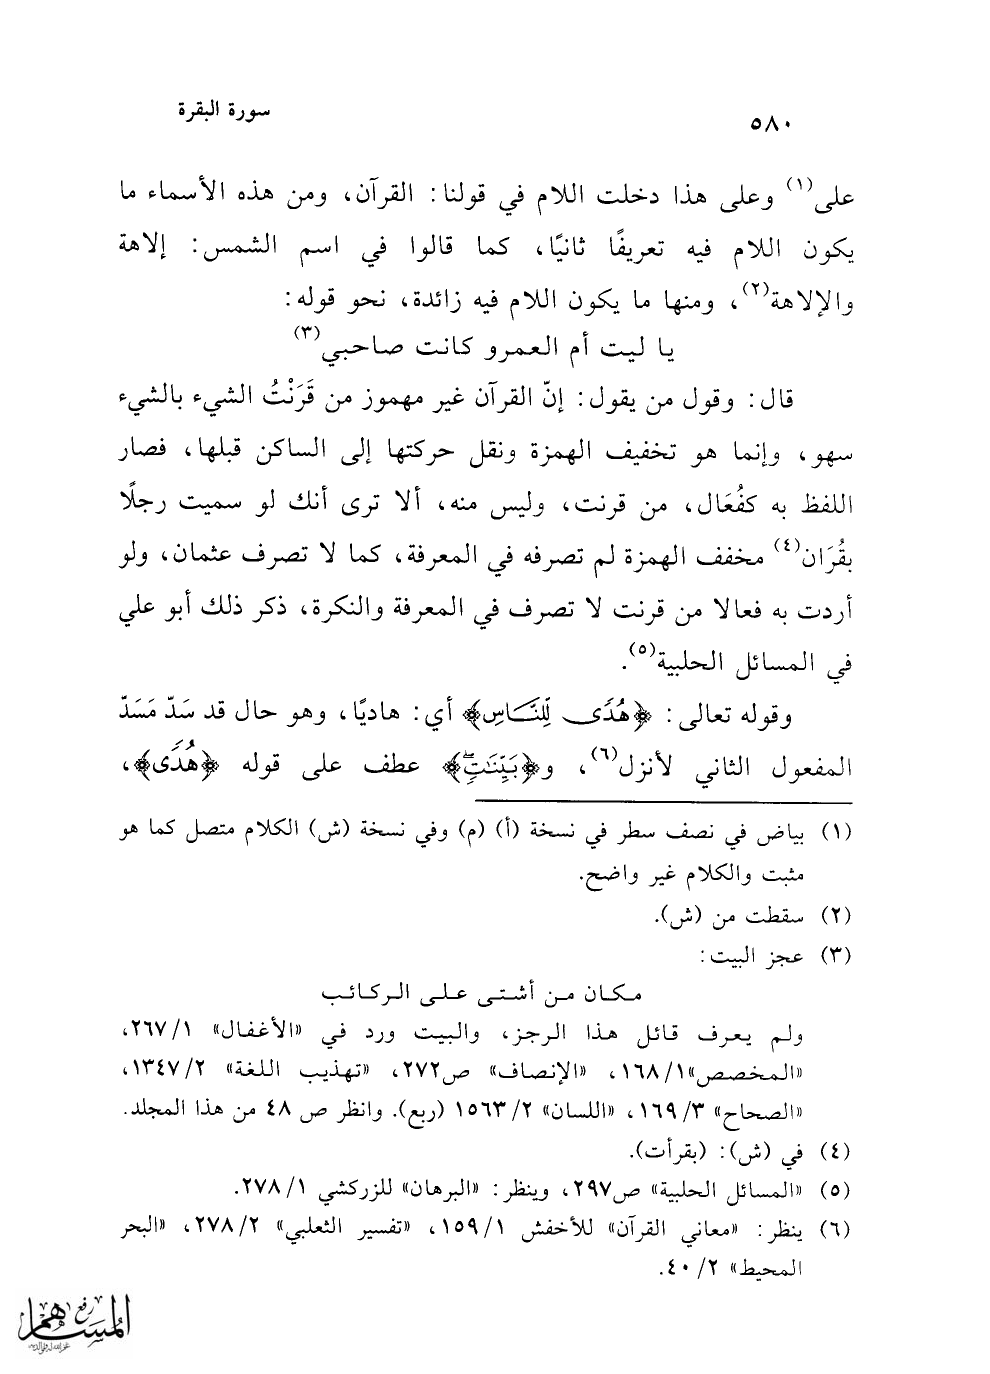 سورة البقرة
٥٨٠
على(١) وعلى هذا دخلت اللام في قولنا: القرآن، ومن هذه الأسماء ما
يكون اللام فيه تعريفًا ثانيًا، كما قالوا في اسم الشمس: إلاهة
والإلاهة(٢)، ومنها ما يكون اللام فيه زائدة، نحو قوله:
يا ليت أم العمرو كانت صاحبي(٣)
قال: وقول من يقول: إنّ القرآن غير مهموز من قَرَنْتُ الشيء بالشيء
سهو، وإنما هو تخفيف الهمزة ونقل حركتها إلى الساكن قبلها، فصار
اللفظ به كفُعَال، من قرنت، وليس منه، ألا ترى أنك لو سميت رجلًا
بقُرَان(٤) مخفف الهمزة لم تصرفه في المعرفة، كما لا تصرف عثمان، ولو
أردت به فعالا من قرنت لا تصرف في المعرفة والنكرة، ذكر ذلك أبو علي
في المسائل الحلبية(٥).
وقوله تعالى: ﴿هُدًى لِّلنَّاسِ﴾ أي: هاديًا، وهو حال قد سَدّ مَسَدّ
المفعول الثاني لأنزل(٦)، و﴿بَيِّنَٰتٍۢ﴾ عطف على قوله ﴿هُدًى﴾،
(١) بياض في نصف سطر في نسخة (أ) (م) وفي نسخة (ش) الكلام متصل كما هو
مثبت والكلام غير واضح.
(٢) سقطت من (ش).
(٣) عجز البيت:
مكان من أشتى على الركائب
ولم يعرف قائل هذا الرجز، والبيت ورد في «الأغفال» ٢٦٧/١،
«المخصص»١٦٨/١، «الإنصاف» ص٢٧٢، «تهذيب اللغة» ١٣٤٧/٢،
«الصحاح» ١٦٩/٣، «اللسان» ١٥٦٣/٢ (ربع). وانظر ص ٤٨ من هذا المجلد.
(٤) في (ش): (بقرأت).
(٥) «المسائل الحلبية» ص٢٩٧، وينظر: «البرهان» للزركشي ٢٧٨/١.
(٦) ينظر: «معاني القرآن» للأخفش ١٥٩/١، «تفسير الثعلبي» ٢٧٨/٢، «البحر
المحيط» ٤٠/٢.
رفع
المساهم